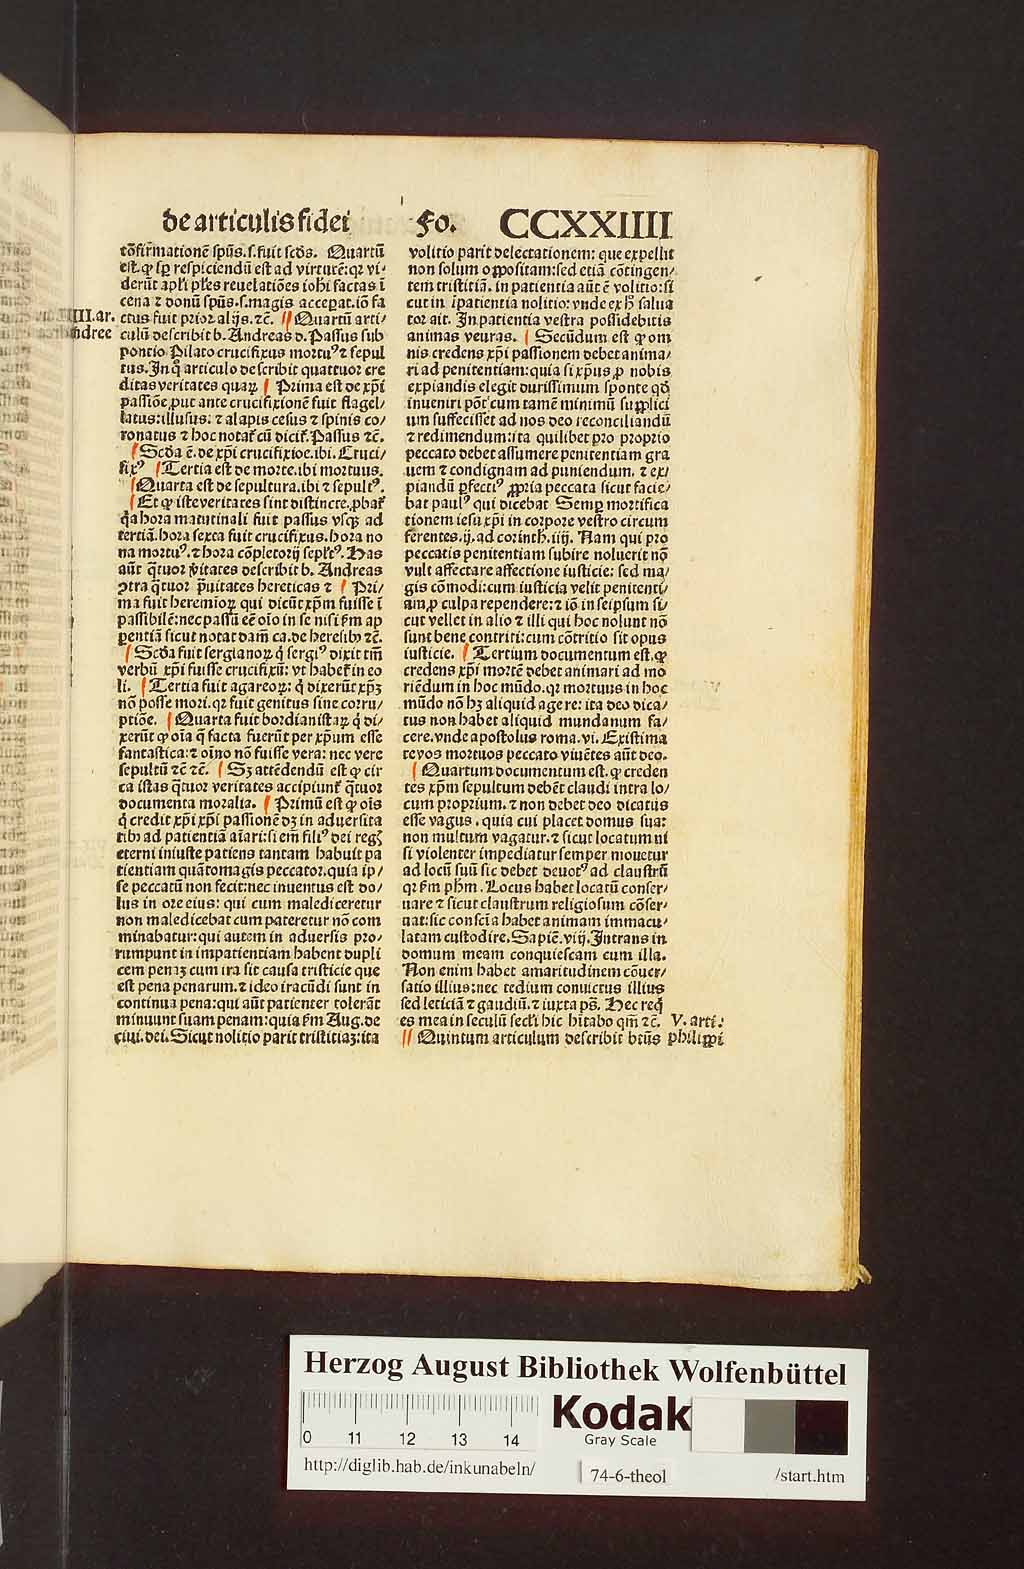 de articulis fidei fo. CCXXIIII
cõfirmationẽ spũs.s.fuit scđs. Quartũ
est.ꝙ sp̃ respiciendũ est ad virtutẽ:qꝛ vi-
derũt apl̃i pl̃es reuelatiões ioh̃i factas ĩ
cena ⁊ donũ spũs.s.magis acceperat.iõ fa
ctus fuit prior alijs.⁊c. Quartũ arti-
IIII.ar.
culũ describit b. Andreas d. Passus sub
Andree
pontio Pilato crucifixus mortuꝰ ⁊ sepul
tus. In q̊ articulo describit quattuor cre
ditas veritates quaꝝ Prima est de xp̃i
passiõe ꝓut ante crucifixionẽ fuit flagel/
latus:illusus: ⁊ alapis cesus ⁊ spinis co/
ronatus ⁊ hoc notat̃ cũ dicit̃. Passus ⁊c.
Scđa ẽ. de xp̃i crucifixioe.ibi. Cruci/
fixꝰ Tertia est de morte.ibi mortuus.
Quarta est de sepultura.ibi ⁊ sepultꝰ.
Et ꝙ iste veritates sint distincte.ꝓbat̃
q̃a hora matutinali fuit passus vsqꝫ ad
tertiã.hora sexta fuit crucifixus.hora no
na mortuꝰ.⁊ hora cõpletorij sepl̃tꝰ. Has
aũt q̃tuor ṽitates describit b. Andreas
ꝯtra q̃tuor p̃uitates hereticas ⁊ Pri/
ma fuit heremioꝝ qui dicũt xp̃m fuisse ĩ
passibilẽ:nec passũ eẽ oĩo in se nisi ẜm ap
parentiã sicut notat dam̃ ca.de heresibꝫ ⁊c.
Scđa fuit sergianoꝝ q̃ sergiꝰ dixit tm̃
verbũ xp̃i fuisse crucifixũ: vt habet̃ in eo
li. Tertia fuit agareoꝝ: q̃ dixerũt xp̃ꝫ
nõ posse mori.qꝛ fuit genitus sine corru/
ptiõe. Quarta fuit bordianistaꝝ q̃ di/
xerũt ꝙ oĩa q̃ facta fuerũt per xp̃um esse
fantastica:⁊ oĩno nõ fuisse vera: nec vere
sepultũ ⁊c ⁊c. Sꝫ attẽdendũ est ꝙ cir
ca istas q̃tuor veritates accipiunt̃ q̃tuor
documenta moralia. Primũ est ꝙ oĩs
q̃ credit xp̃i xp̃i passionẽ dꝫ in aduersita
tibꝫ ad patientiã aĩari:si em̃ filiꝰ dei regꝭ
eterni iniuste patiens tantam habuit pa
tientiam quãtomagis peccator.quia ip/
se peccatũ non fecit:nec inuentus est do/
lus in ore eius: qui cum malediceretur
non maledicebat cum pateretur nõ com
minabatur:qui autem in aduersis pro/
rumpunt in impatientiam habent dupli
cem penaꝫ cum ira sit causa tristicie que
est pena penarum.⁊ ideo iracũdi sunt in
continua pena:qui aũt patienter tolerãt
minuunt suam penam:quia ẜm Aug.de
ciui.dei.Sicut nolitio parit tristitiaꝫ:ita
volitio parit delectationem: que expellit
non solum oꝓpositam:sed etiã cõtingen/
tem tristitiã.in patientia aũt ẽ volitio:si
cut in ĩpatientia nolitio:vnde ex hꝫ salua
tor ait. In patientia vestra possidebitis
animas veuras. Secũdum est ꝙ om
nis credens xp̃i passionem debet anima/
ri ad penitentiam:quia si xp̃us ꝓ nobis
expiandis elegit durissimum sponte qđ
inueniri põt̃ cum tamẽ minimũ suꝓplici
um suffecisset ad nos deo reconciliandũ
⁊ redimendum:ita quilibet pro proprio
peccato debet assumere penitentiam gra
uem ⁊ condignam ad puniendum.⁊ ex/
piandũ ꝑfectiꝰ ꝓpria peccata sicut facie/
bat paulꝰ qui dicebat Semꝑ mortifica
tionem iesu xp̃i in corpore vestro circum
ferentes.ij.ad corinth.iiij. Nam qui pro
peccatis penitentiam subire noluerit nõ
vult affectare affectione iusticie: sed ma/
gis cõmodi:cum iusticia velit penitenti/
am ꝓ culpa rependere:⁊ iõ in seipsum si/
cut vellet in alio ⁊ illi qui hoc nolunt nõ
sunt bene contriti:cum cõtritio sit opus
iusticie. Tertium documentum est.ꝙ
credens xp̃i mortẽ debet animari ad mo
riẽdum in hoc mũdo.qꝛ mortuus in hoc
mũdo nõ hꝫ aliquid agere: ita deo dica/
tus non habet aliquid mundanum fa/
cere.vnde apostolus roma.vi. Existima
te vos mortuos peccato viuẽtes aũt deo.
Quartum documentum est.ꝙ creden
tes xp̃m sepultum debẽt claudi intra lo/
cum proprium.⁊ non debet deo dicatus
esse vagus.quia cui placet domus sua:
non multum vagatur.⁊ sicut locatum ni
si violenter impediatur semper mouetur
ad locũ suũ sic debet deuotꝰ ad claustrũ
qꝛ ẜm ph̃m. Locus habet locatũ conser/
uare ⁊ sicut claustrum religiosum cõser/
uat:sic consc̃ia habet animam immacu/
latam custodire. Sapiẽ.viij. Intrans in
domum meam conquiescam cum illa.
Non enim habet amaritudinem cõuer/
satio illius:nec tedium conuictus illius
sed leticiã ⁊ gaudiũ.⁊ iuxta ps̃. Hec req̃
es mea in seculũ secl̃i hic h̃itabo qm̃ ⁊c.
V. arti:
Quintum articulum describit bt̃us
philippi
Herzog August Bibliothek Wolfenbüttel
0 11 12 13 14
Kodak
Gray Scale
http://diglib.hab.de/inkunabeln/ 74-6-theol /start.htm